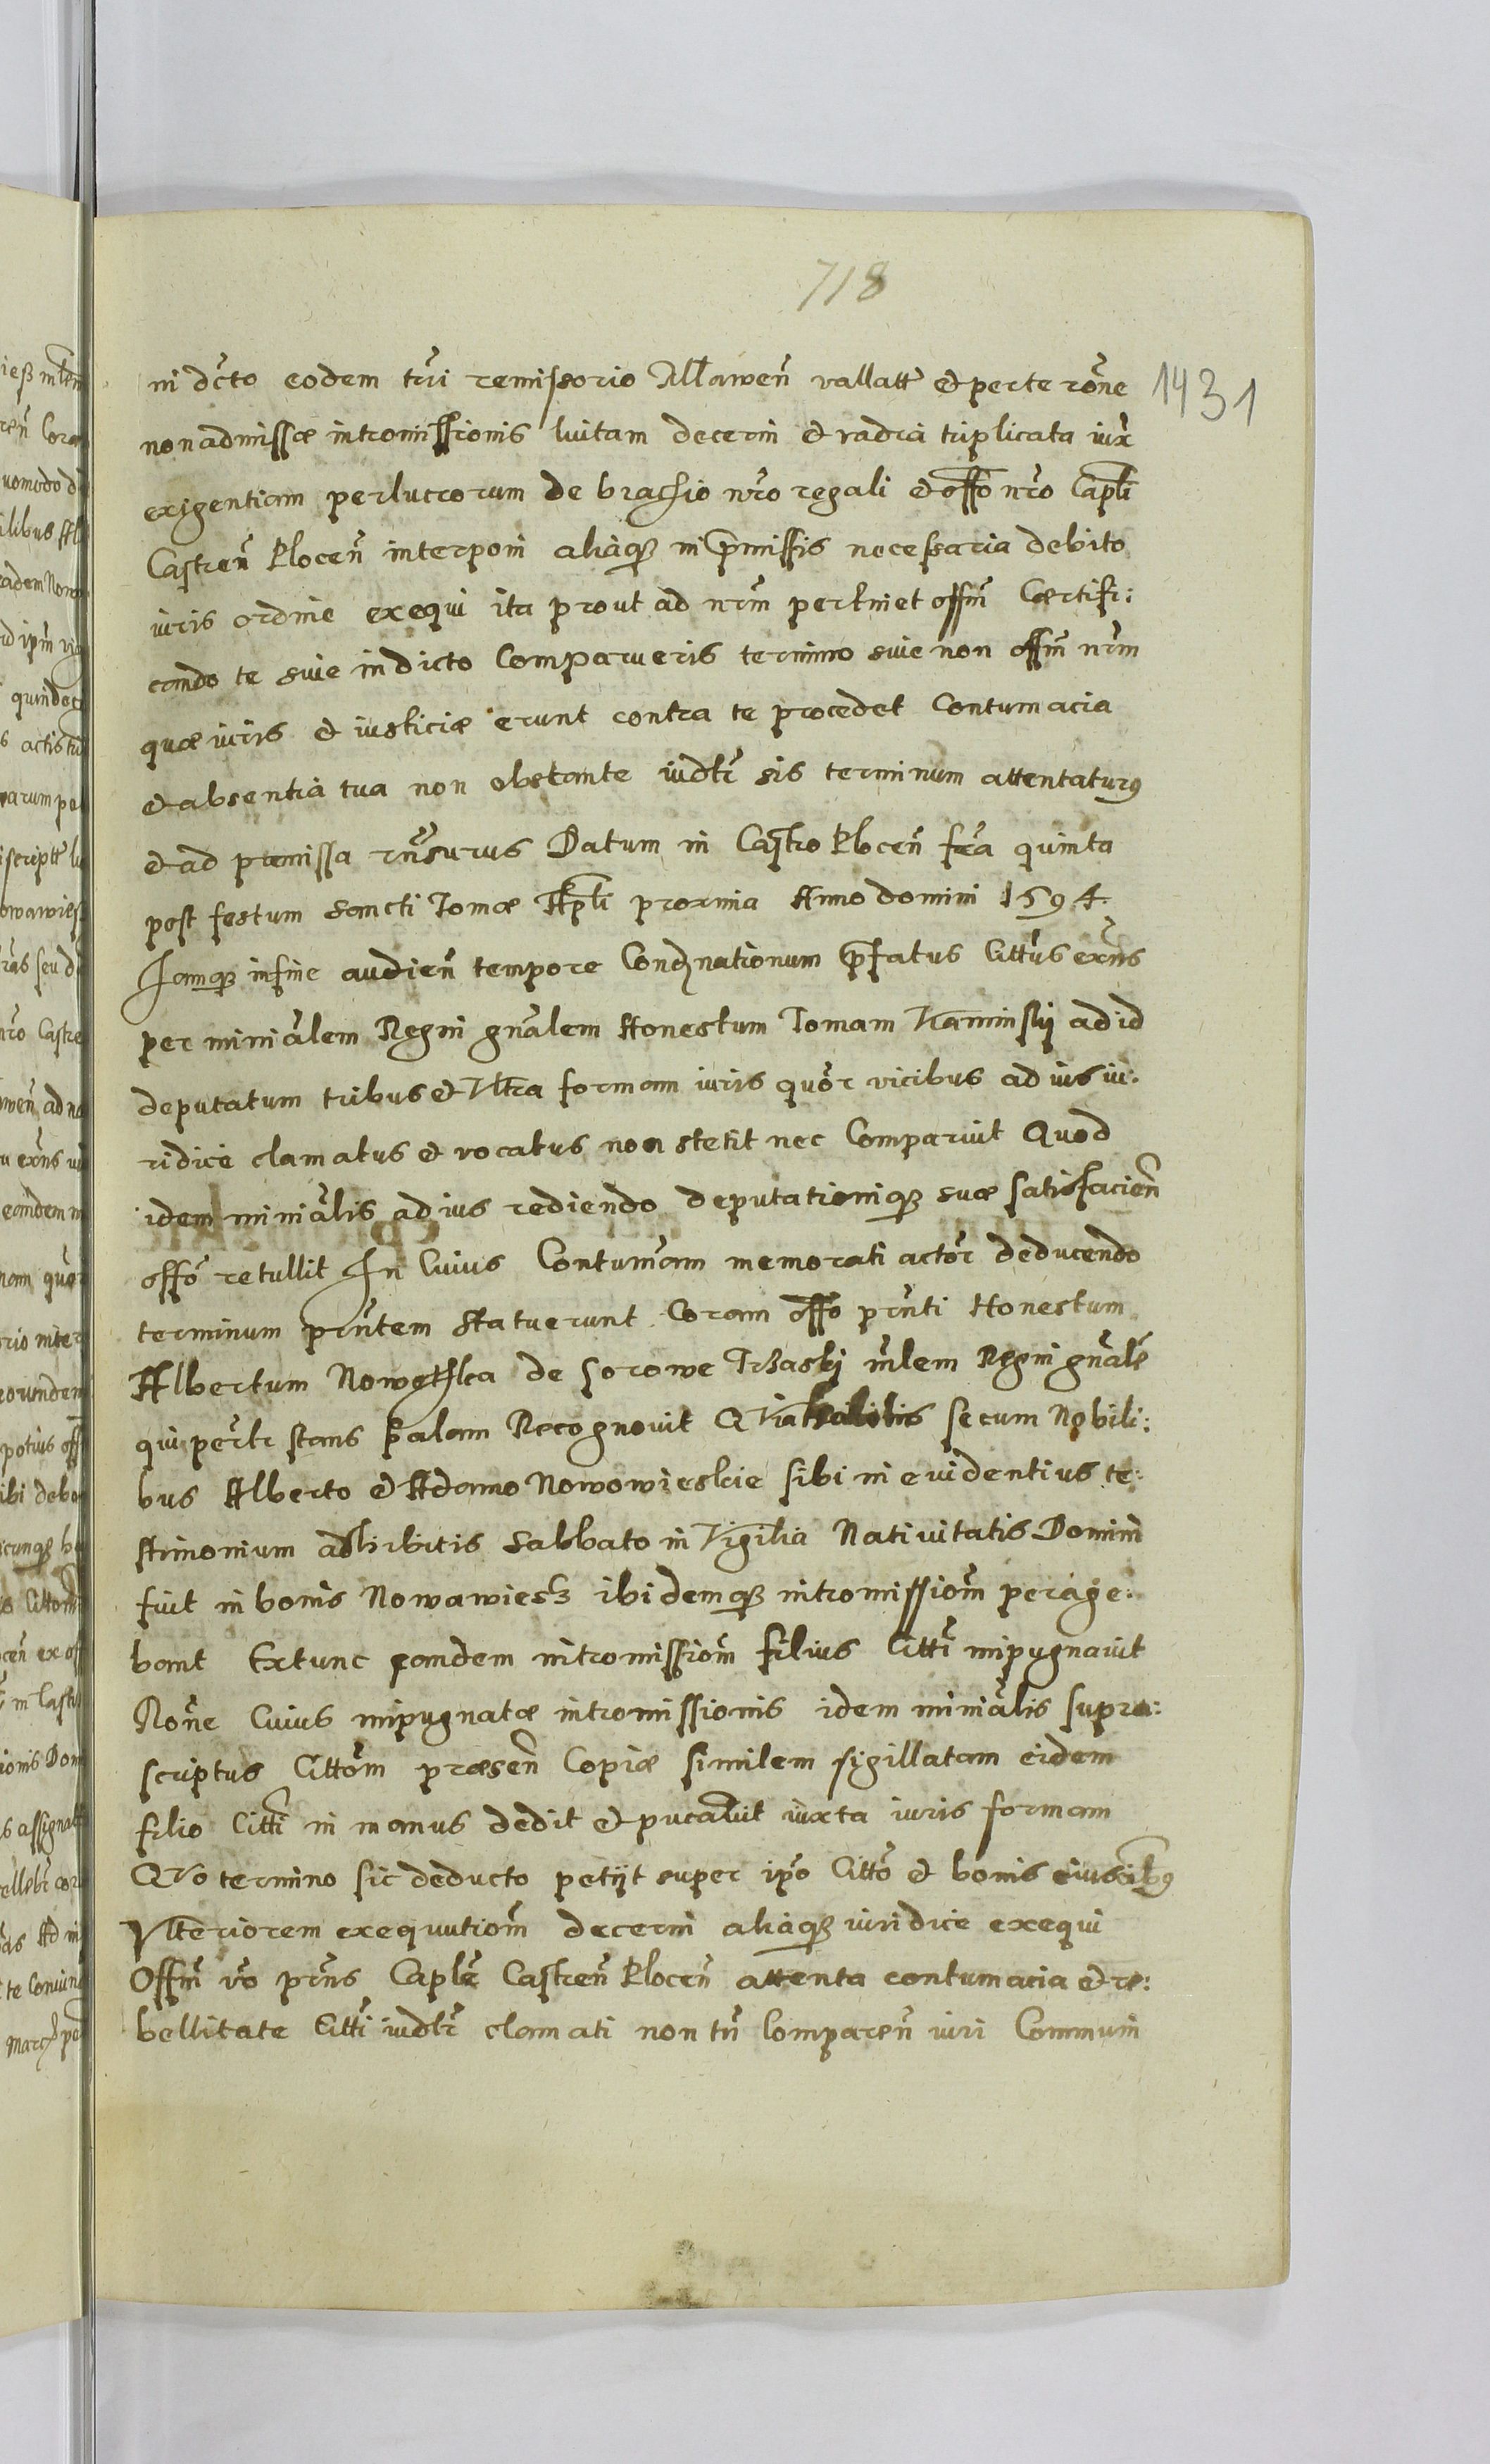 718
1431
in dcto eodem tri remissorio Mlawen vallatt et per te rone
non admissæ intromissionis luitam decerni et vadia triplicata iux
exigentiam perlucrorum de brachio nro regali et offo nro Capli
Castren Plocen interponi aliaq3 in pmissis necessaria debito
iuris ordine exequi ita prout ad nrm pertinet offm Certifi:
cando te siue in dicto Comparueris termino siue non offm nrm
quæ iuris et iusticiæ erunt contra te procedet Contumacia
et absentia tua non obstante iudtr sis terminum attentaturus
et ad præmissa rnsurus Datum in Castro Plocen fria quinta
post festum sancti Tomæ Apli proxima Anno domini 1594.
Iamq3 in fine audien tempore Condnationum pfatus Cittus exns
per minialem Regni gnalem Honestum Tomam Kaminskj ad id
deputatum tribus et Vltra formam iuris quor vicibus ad ius iu:
ridice clamatus et vocatus non stetit nec Comparuit Quod
idem minialis ad ius rediendo deputationiq3 suæ satisfacien
offo retullit In Cuius Contumam memorati actor deducendo
terminum prntem statuerunt Coram offo prnti Honestum
Albertum Nowothka de Sorowe Trzaskj mlem Regni gnale
qui perlr stans palam Recognouit Quia habitis secum Nobili:
bus Alberto et Adamo Nowowieskie sibi in euidentius te:
stimonium adhibitis sabbato in Vigilia Natiuitatis Domini
fuit in bonis Nowawiesz ibidemq3 intromissiom perage:
bant Extunc eandem intromissiom filius Citti impugnauit
Rone Cuius impugnatæ intromissionis idem minialis supra:
scriptus Cittom præsen Copiæ similem sigillatam eidem
filio Citti in manus dedit et pucauit iuxta iuris formam
Quo termino sic deducto petijt super ipo Citto et bonis eius oibus
Vlteriorem exequutiom decerni aliaq3 iuridice exequi
Offm vo prns Caple Castren Plocen attenta contumacia et re:
bellitate Citti iudtr clamati non tn Comparen iuri Communi